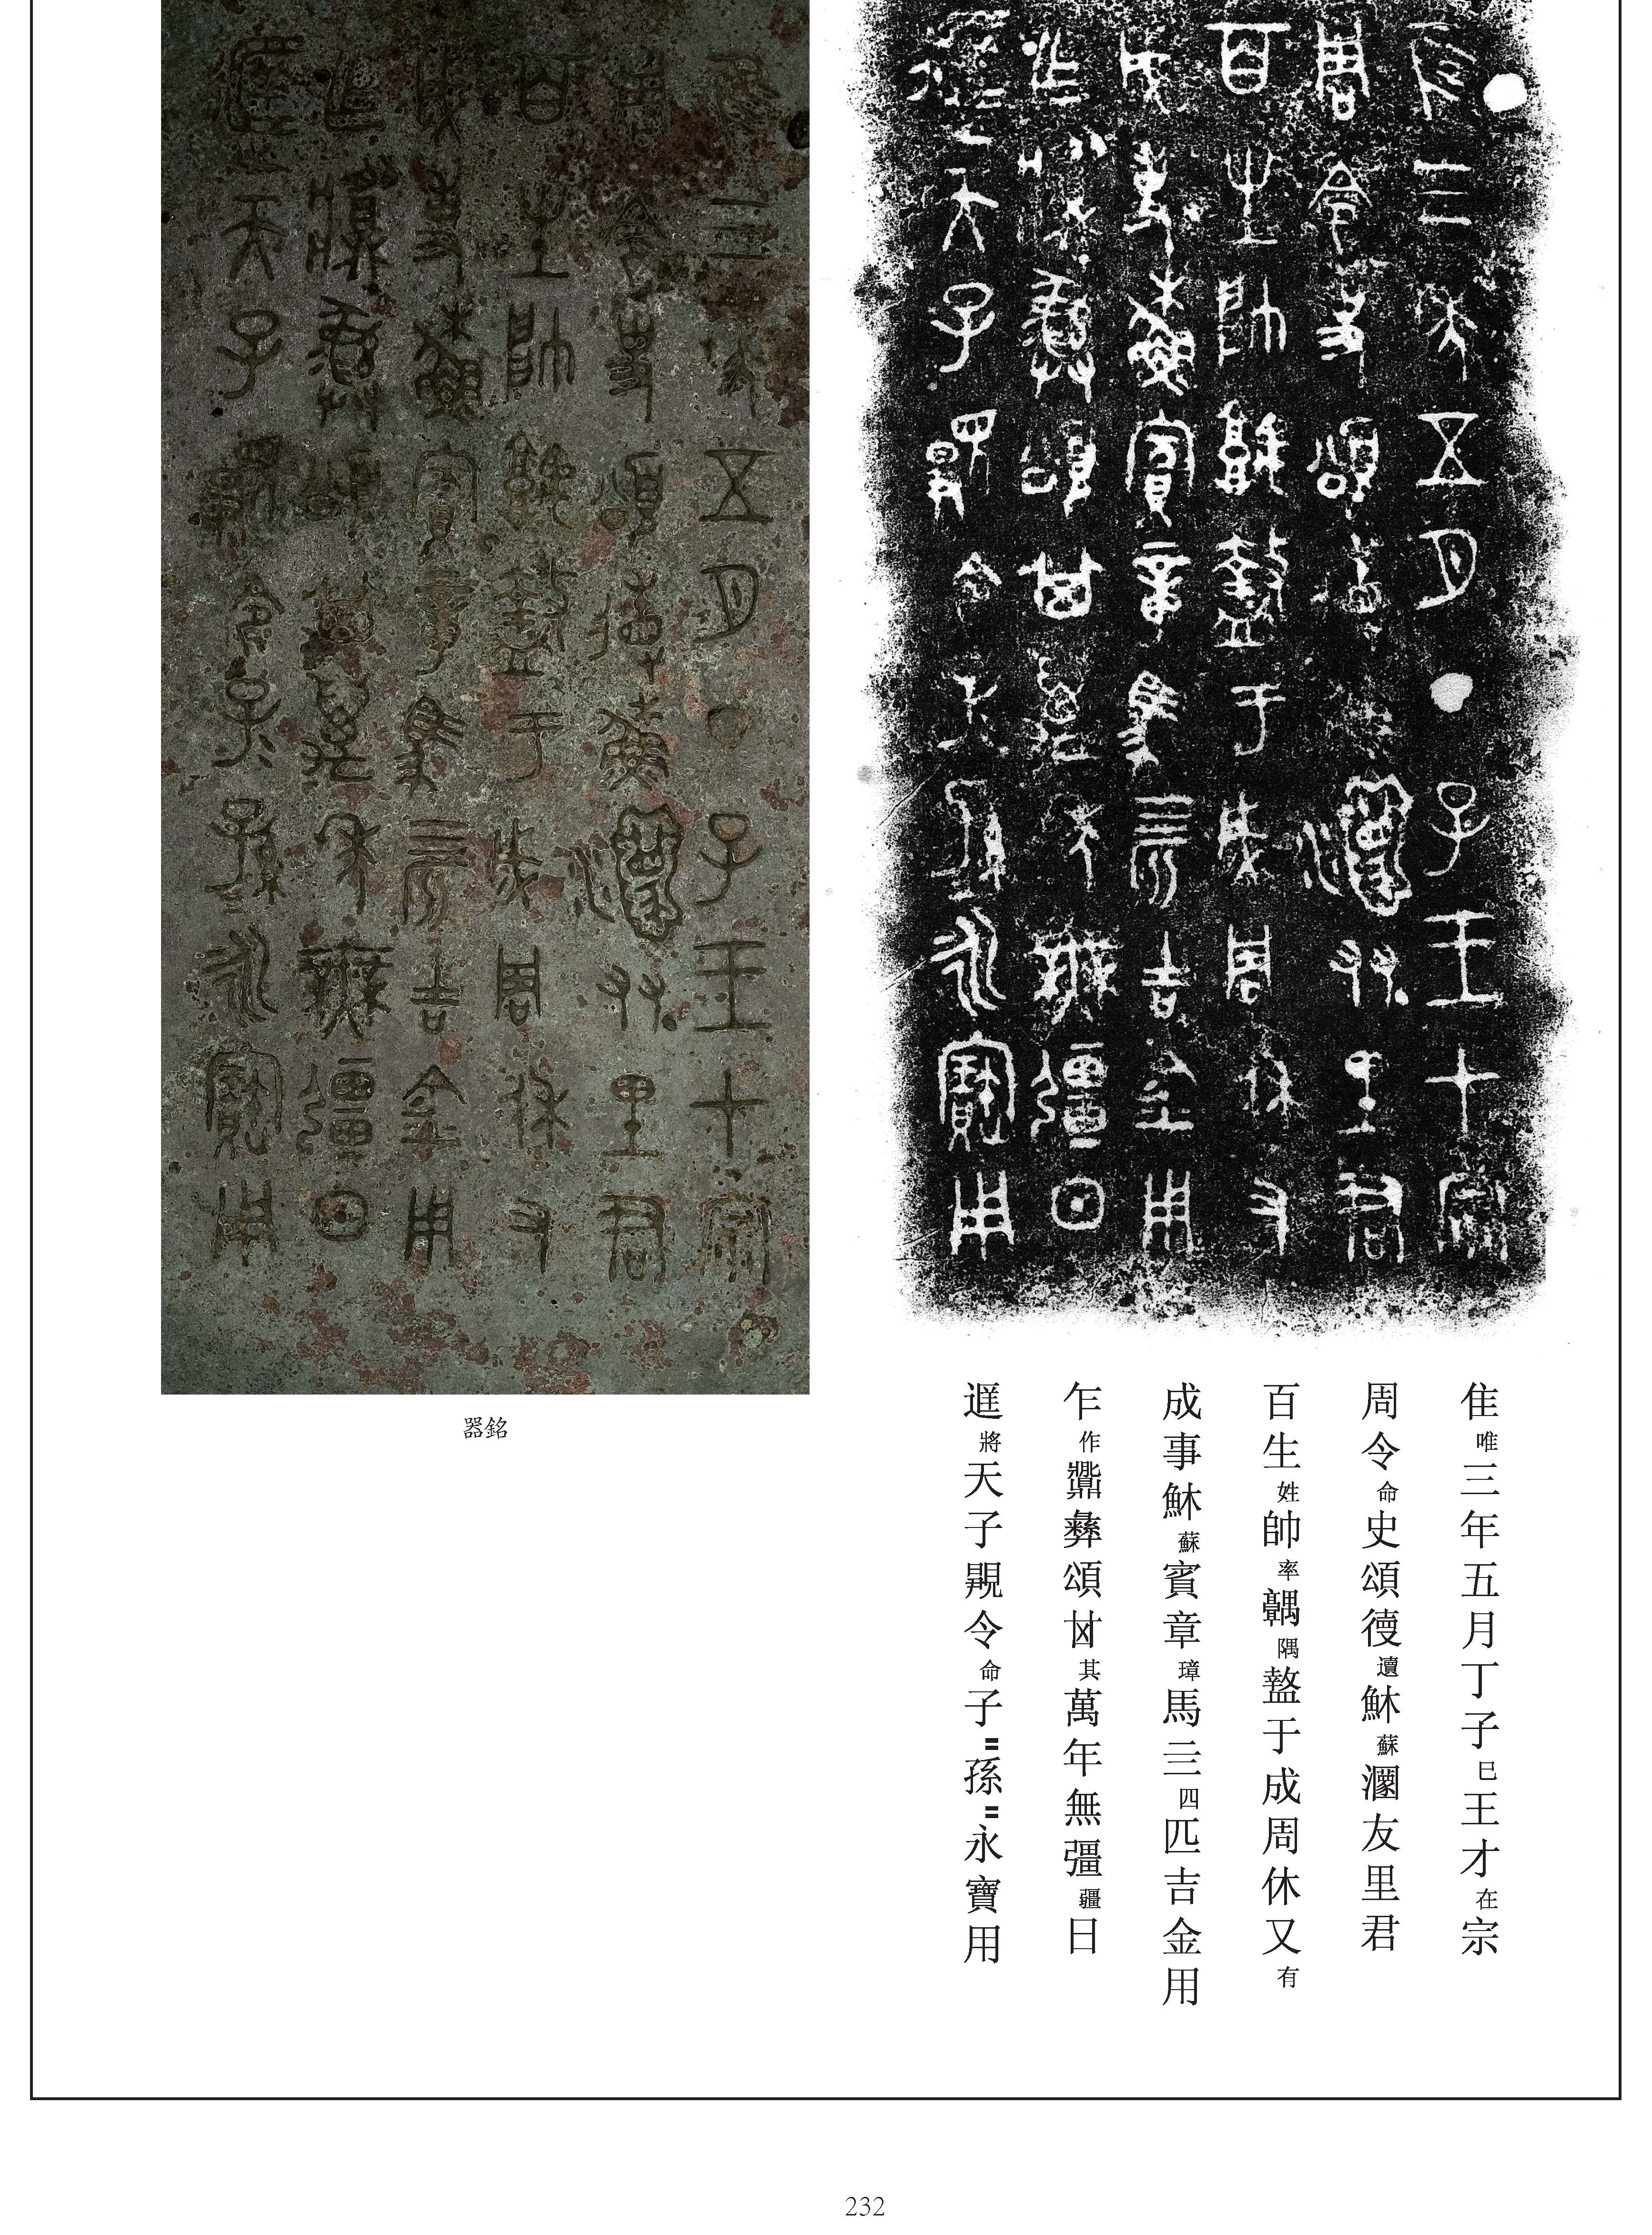 隹唯三年五月丁子巳王才在宗
周令命史頌德𧽙穌蘇瀾友里君
百生姓帥率𩫨隅盩于成周休又有
成事穌蘇賓章璋馬亖四匹吉金用
乍作𩱧彝頌𠀠其萬年無彊疆日
遟將天子顯令命子〓孫〓永寶用
器銘
232